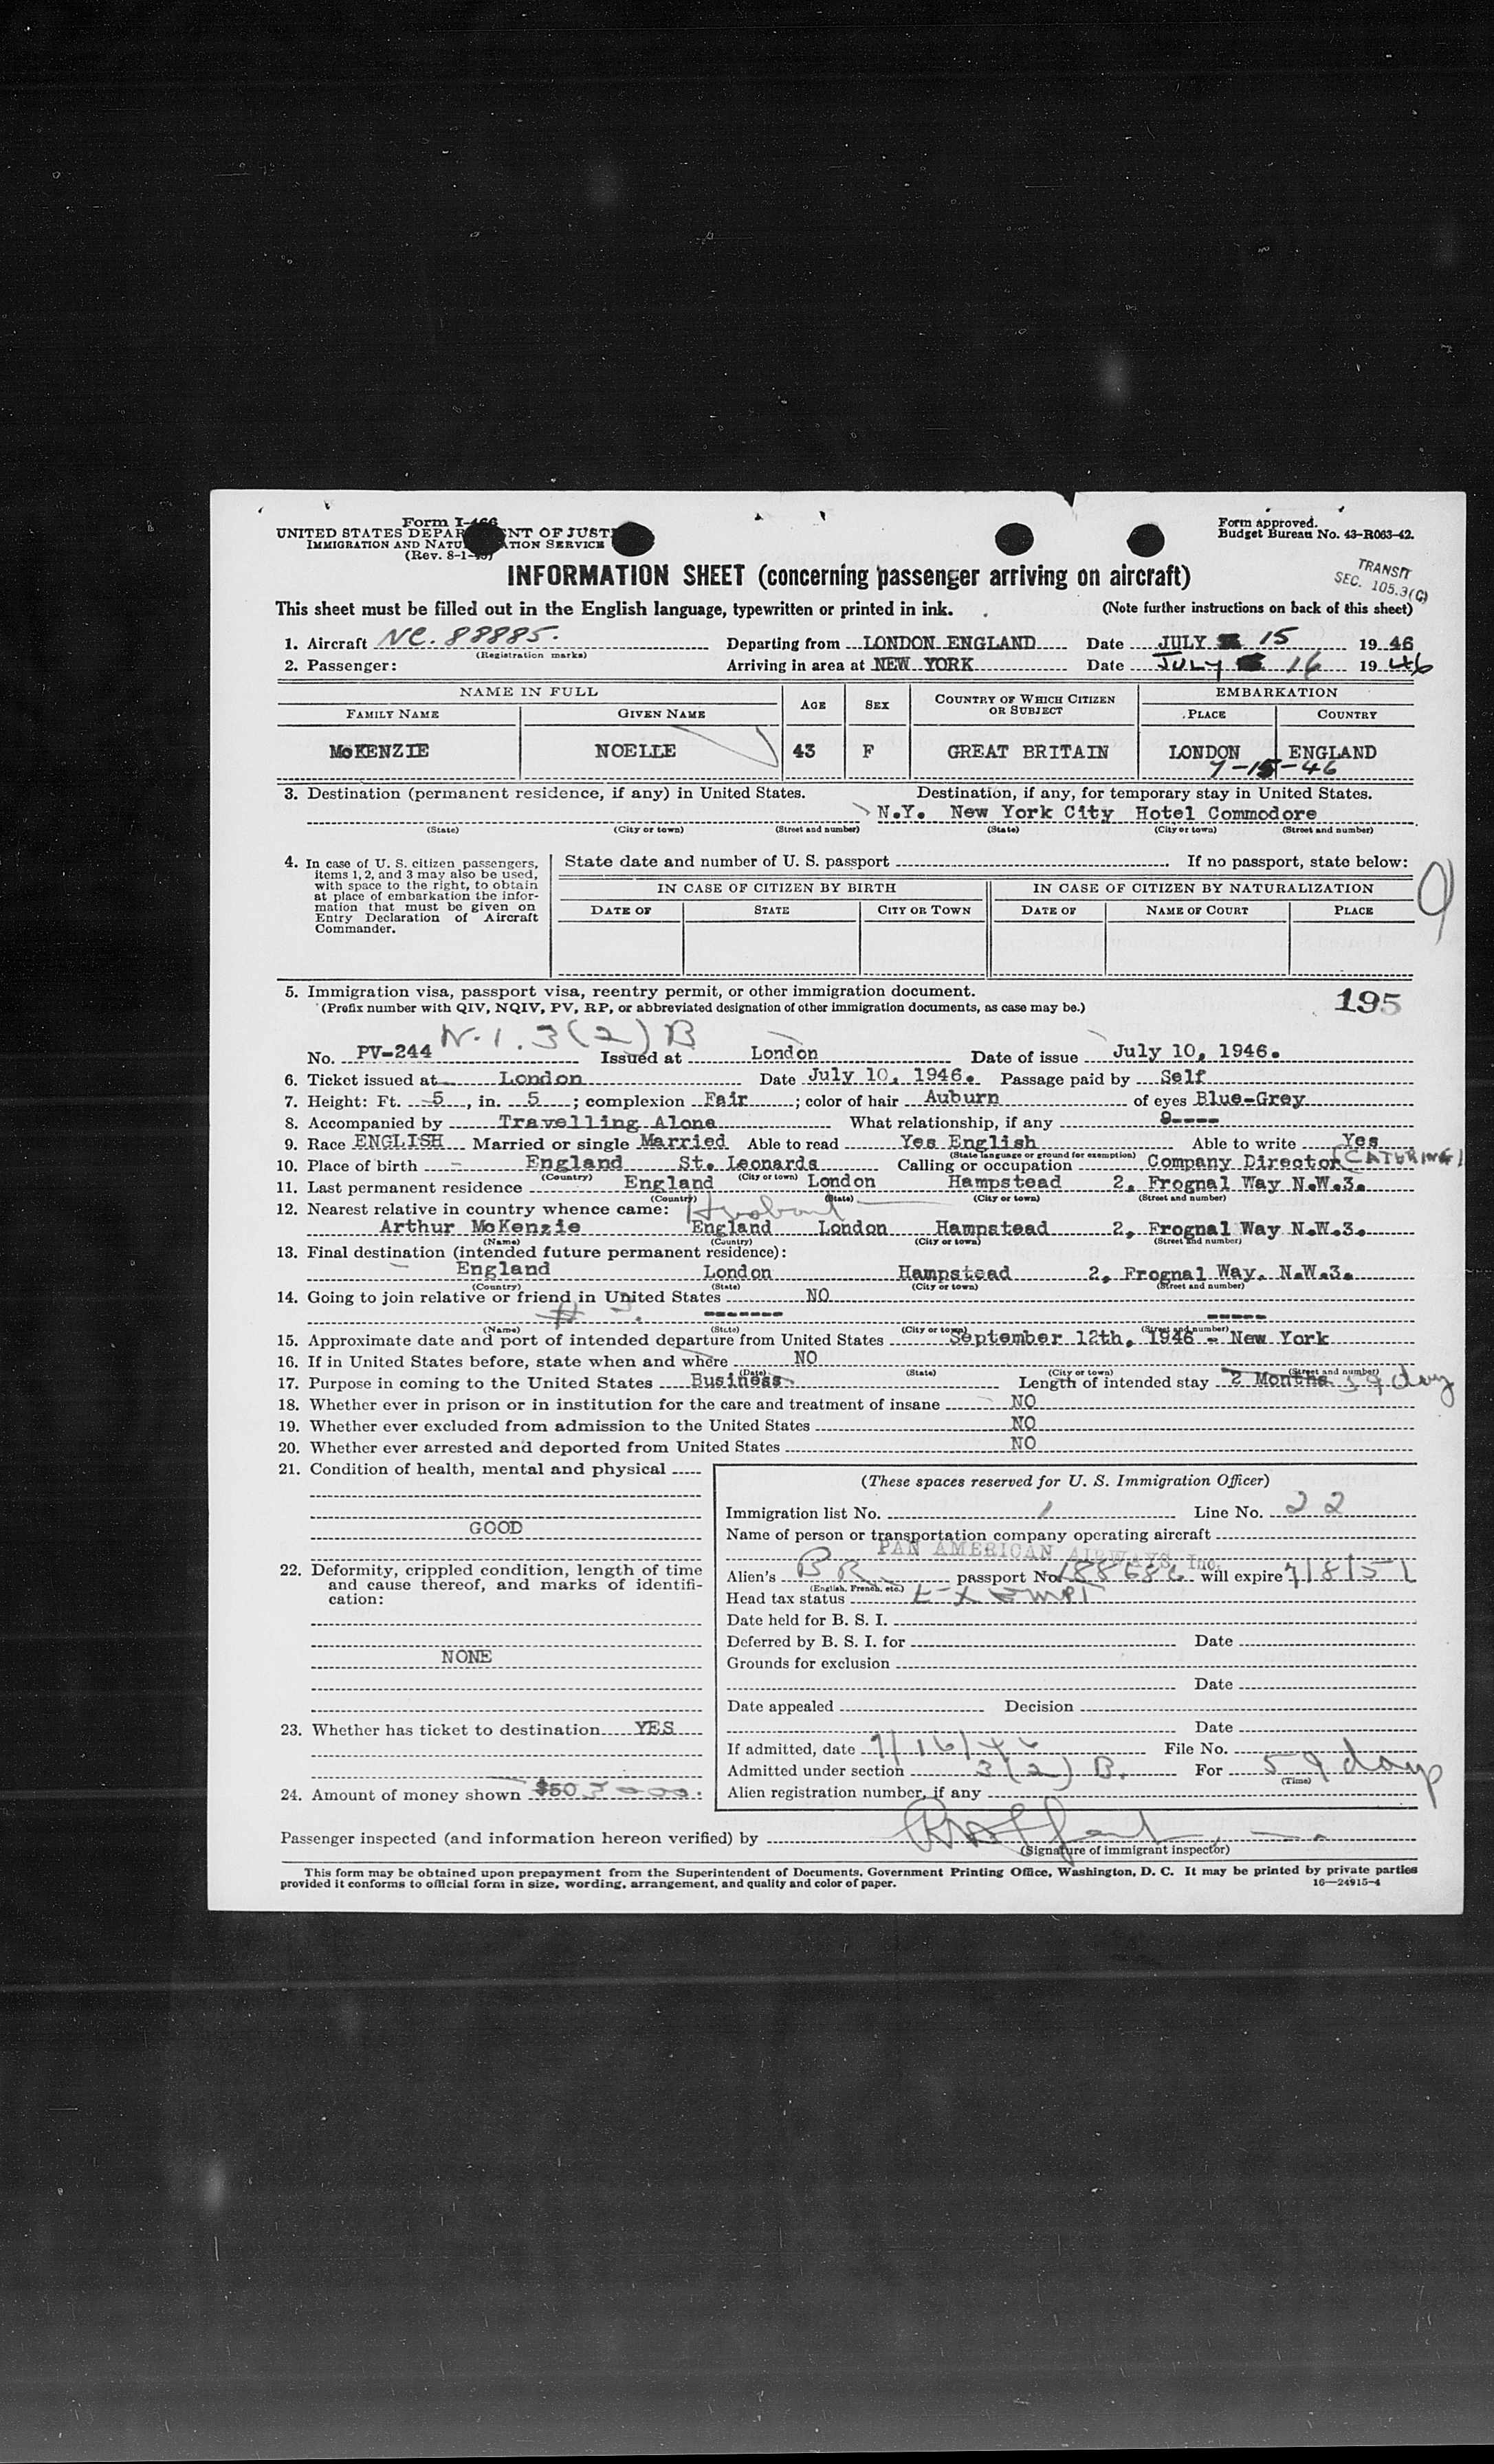 Form I-466
UNITED STATES DEPARTMENT OF JUSTICE
IMMIGRATION AND NATURALIZATION SERVICE
(Rev. 8-1-45)
Form approved.
Budget Bureau No. 43-R063-42.
INFORMATION SHEET (concerning passenger arriving on aircraft)
TRANSIT
SEC. 105.3(C)
This sheet must be filled out in the English language, typewritten or printed in ink. (Note further instructions on back of this sheet)
1. Aircraft NC. 88885. Departing from LONDON ENGLAND Date JULY 15 1946
(Registration marks)
2. Passenger: Arriving in area at NEW YORK Date JULY 16 1946
NAME IN FULL AGE SEX COUNTRY OF WHICH CITIZEN OR SUBJECT EMBARKATION
FAMILY NAME GIVEN NAME PLACE COUNTRY
McKENZIE NOELLE 43 F GREAT BRITAIN LONDON ENGLAND
7-15-46
3. Destination (permanent residence, if any) in United States. Destination, if any, for temporary stay in United States.
N.Y. New York City Hotel Commodore
(State) (City or town) (Street and number) (State) (City or town) (Street and number)
4. In case of U. S. citizen passengers, items 1, 2, and 3 may also be used, with space to the right, to obtain at place of embarkation the information that must be given on Entry Declaration of Aircraft Commander.
State date and number of U. S. passport If no passport, state below:
IN CASE OF CITIZEN BY BIRTH IN CASE OF CITIZEN BY NATURALIZATION
DATE OF STATE CITY OR TOWN DATE OF NAME OF COURT PLACE
5. Immigration visa, passport visa, reentry permit, or other immigration document.
(Prefix number with QIV, NQIV, PV, RP, or abbreviated designation of other immigration documents, as case may be.)
195
N.I. 3(2)B
No. PV-244 Issued at London Date of issue July 10, 1946.
6. Ticket issued at London Date July 10, 1946. Passage paid by Self
7. Height: Ft. 5, in. 5; complexion Fair; color of hair Auburn of eyes Blue-Grey
8. Accompanied by Travelling Alone What relationship, if any ----
9. Race ENGLISH Married or single Married Able to read Yes English Able to write Yes
(State language or ground for exemption)
10. Place of birth England St. Leonards Calling or occupation Company Director (CATERING)
(Country) (City or town)
11. Last permanent residence England London Hampstead 2, Frognal Way N.W.3.
(Country) (State) (City or town) (Street and number)
12. Nearest relative in country whence came: Husband
Arthur McKenzie England London Hampstead 2, Frognal Way N.W.3.
(Name) (Country) (City or town) (Street and number)
13. Final destination (intended future permanent residence):
England London Hampstead 2, Frognal Way. N.W.3.
(Country) (State) (City or town) (Street and number)
14. Going to join relative or friend in United States NO
------- -----
(Name) (State) (City or town) (Street and number)
15. Approximate date and port of intended departure from United States September 12th, 1946 - New York
16. If in United States before, state when and where NO
(Date) (State) (City or town) (Street and number)
17. Purpose in coming to the United States Business Length of intended stay 2 Months 59 days
18. Whether ever in prison or in institution for the care and treatment of insane NO
19. Whether ever excluded from admission to the United States NO
20. Whether ever arrested and deported from United States NO
21. Condition of health, mental and physical
GOOD
22. Deformity, crippled condition, length of time and cause thereof, and marks of identification:
NONE
23. Whether has ticket to destination YES
24. Amount of money shown $50
(These spaces reserved for U. S. Immigration Officer)
Immigration list No. 1 Line No. 22
Name of person or transportation company operating aircraft
PAN AMERICAN AIRWAYS, Inc.
Alien's BR. passport No. 188686 will expire 7/8/51
(English, French, etc.)
Head tax status EXEMPT
Date held for B. S. I.
Deferred by B. S. I. for Date
Grounds for exclusion
Date
Date appealed Decision
Date
If admitted, date 7/16/46 File No.
Admitted under section 3(2) B. For 59 days
(Time)
Alien registration number, if any
Passenger inspected (and information hereon verified) by
(Signature of immigrant inspector)
This form may be obtained upon prepayment from the Superintendent of Documents, Government Printing Office, Washington, D. C. It may be printed by private parties
provided it conforms to official form in size, wording, arrangement, and quality and color of paper. 16—24915-4